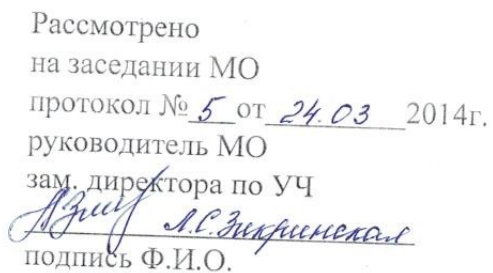 Рассмотрено
на заседании МО
протокол № 5 от 24.03 2014г.
руководитель МО
зам. директора по УЧ
А.С.
подпись Ф.И.О.